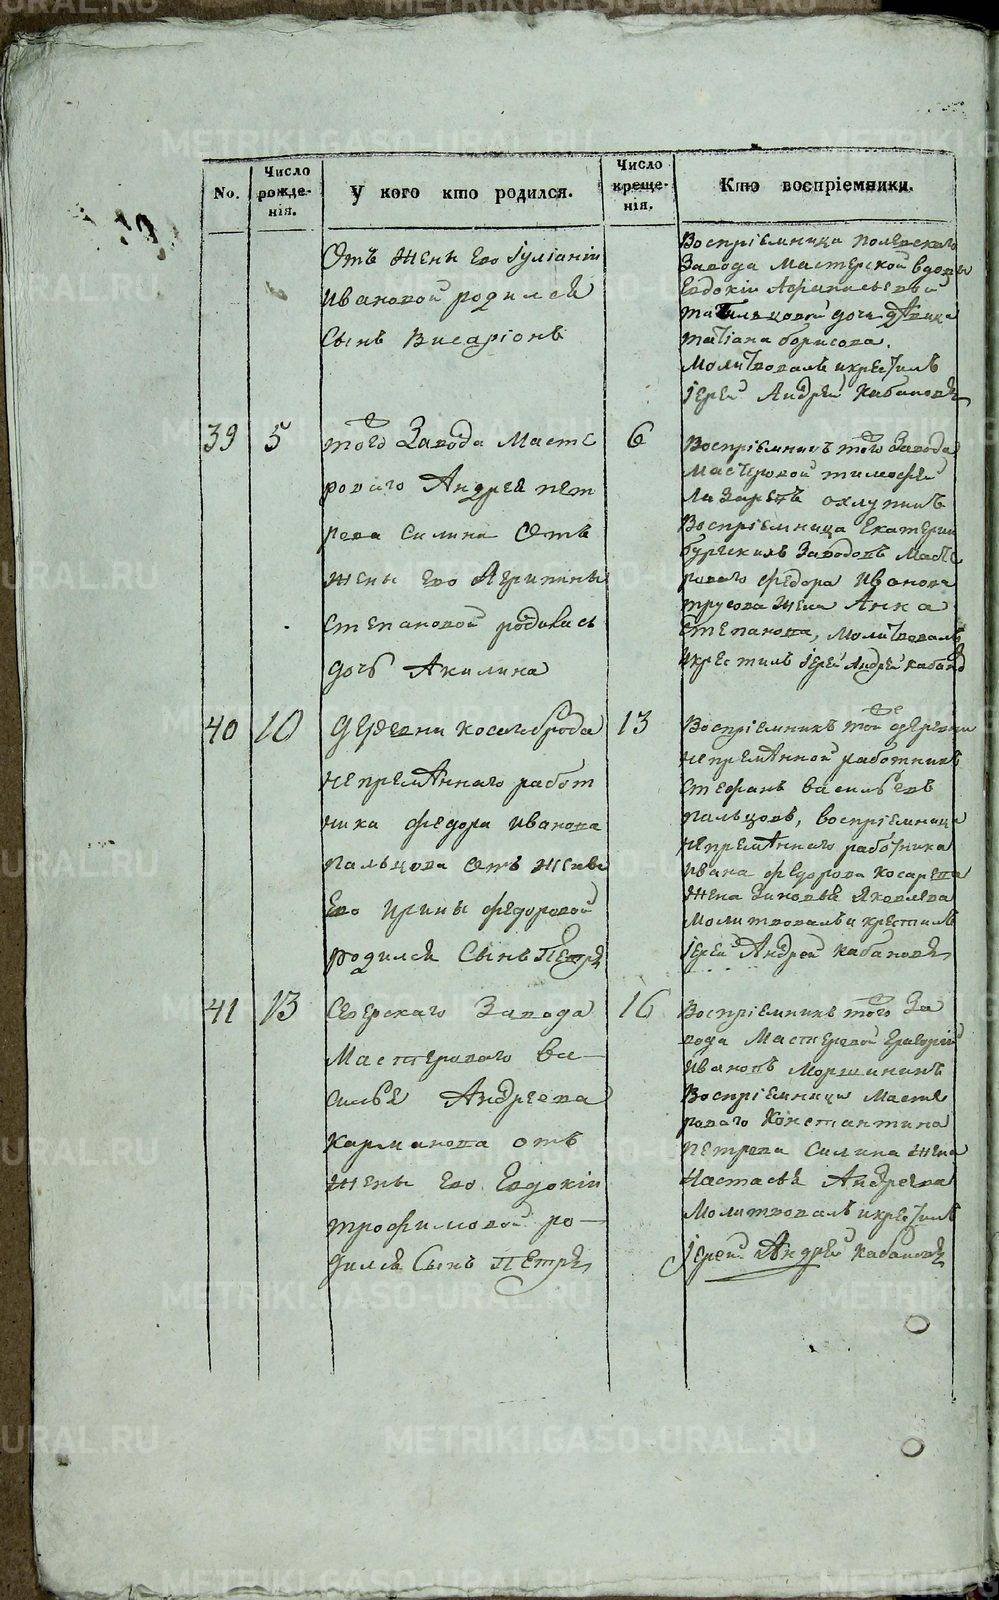 No.
Число рожде- нія.
У кого кто родился.
Число креще- нія.
Кто воспріемники.
Отъ жены его Іуліаніи
Ивановой родился
сынъ Висаріонъ
Воспріемница полевскаго
завода мастерской вдовы
Евдокіи Афанасьевы
доч девица
татіана борисова.
молитвовалъ и крестилъ
іерей Андрей Кабановъ
39
5
того завода масте
роваго Андрея пет
рова силина отъ
жены его Агрипины
степановой родилась
дочь Акилина
6
Воспріемникъ того завода
мастеровой тимофей
лазаревъ охлупинъ
Воспріемница Екатерин
бургскихъ заводовъ масте
роваго федора Иванова
трусова жена Анна
степанова, молитвовалъ
и крестилъ іерей Андрей кабанов
40
10
деревни косогоброда
непремѣннаго работ
ника федора Иванова
пальцова отъ жены
Его Ирины федоровой
родился сынъ Петръ
13
Воспріемникъ той деревни
непремѣнной работникъ
стефанъ васильевъ
пальцовъ, воспріемница
непремѣннаго работника
ивана федорова косарева
жена Зиновья Яковлева
молитвовалъ и крестилъ
іерей Андрей кабановъ
41
13
Северскаго завода
мастероваго ва-
силья Андреева
карманова отъ
жены его Евдокіи
трофимовой ро-
дился сынъ Петръ
16
Воспріемникъ того за
вода мастеровой Григорій
ивановъ моршининъ
Воспріемница масте
роваго Константина
петрова силина жена
Настасья Андреева
молитвовалъ и крестилъ
іерей Андрей кабановъ
METRIKI.GASO-URAL.RU